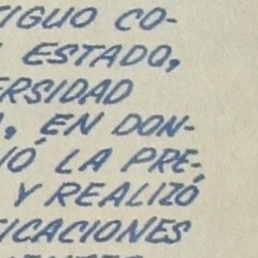 TIGUO CO-
ESTADO,
ERSIDAD
, EN DON-
Ó LA PRE-
Y REALIZÓ
ICACIONES